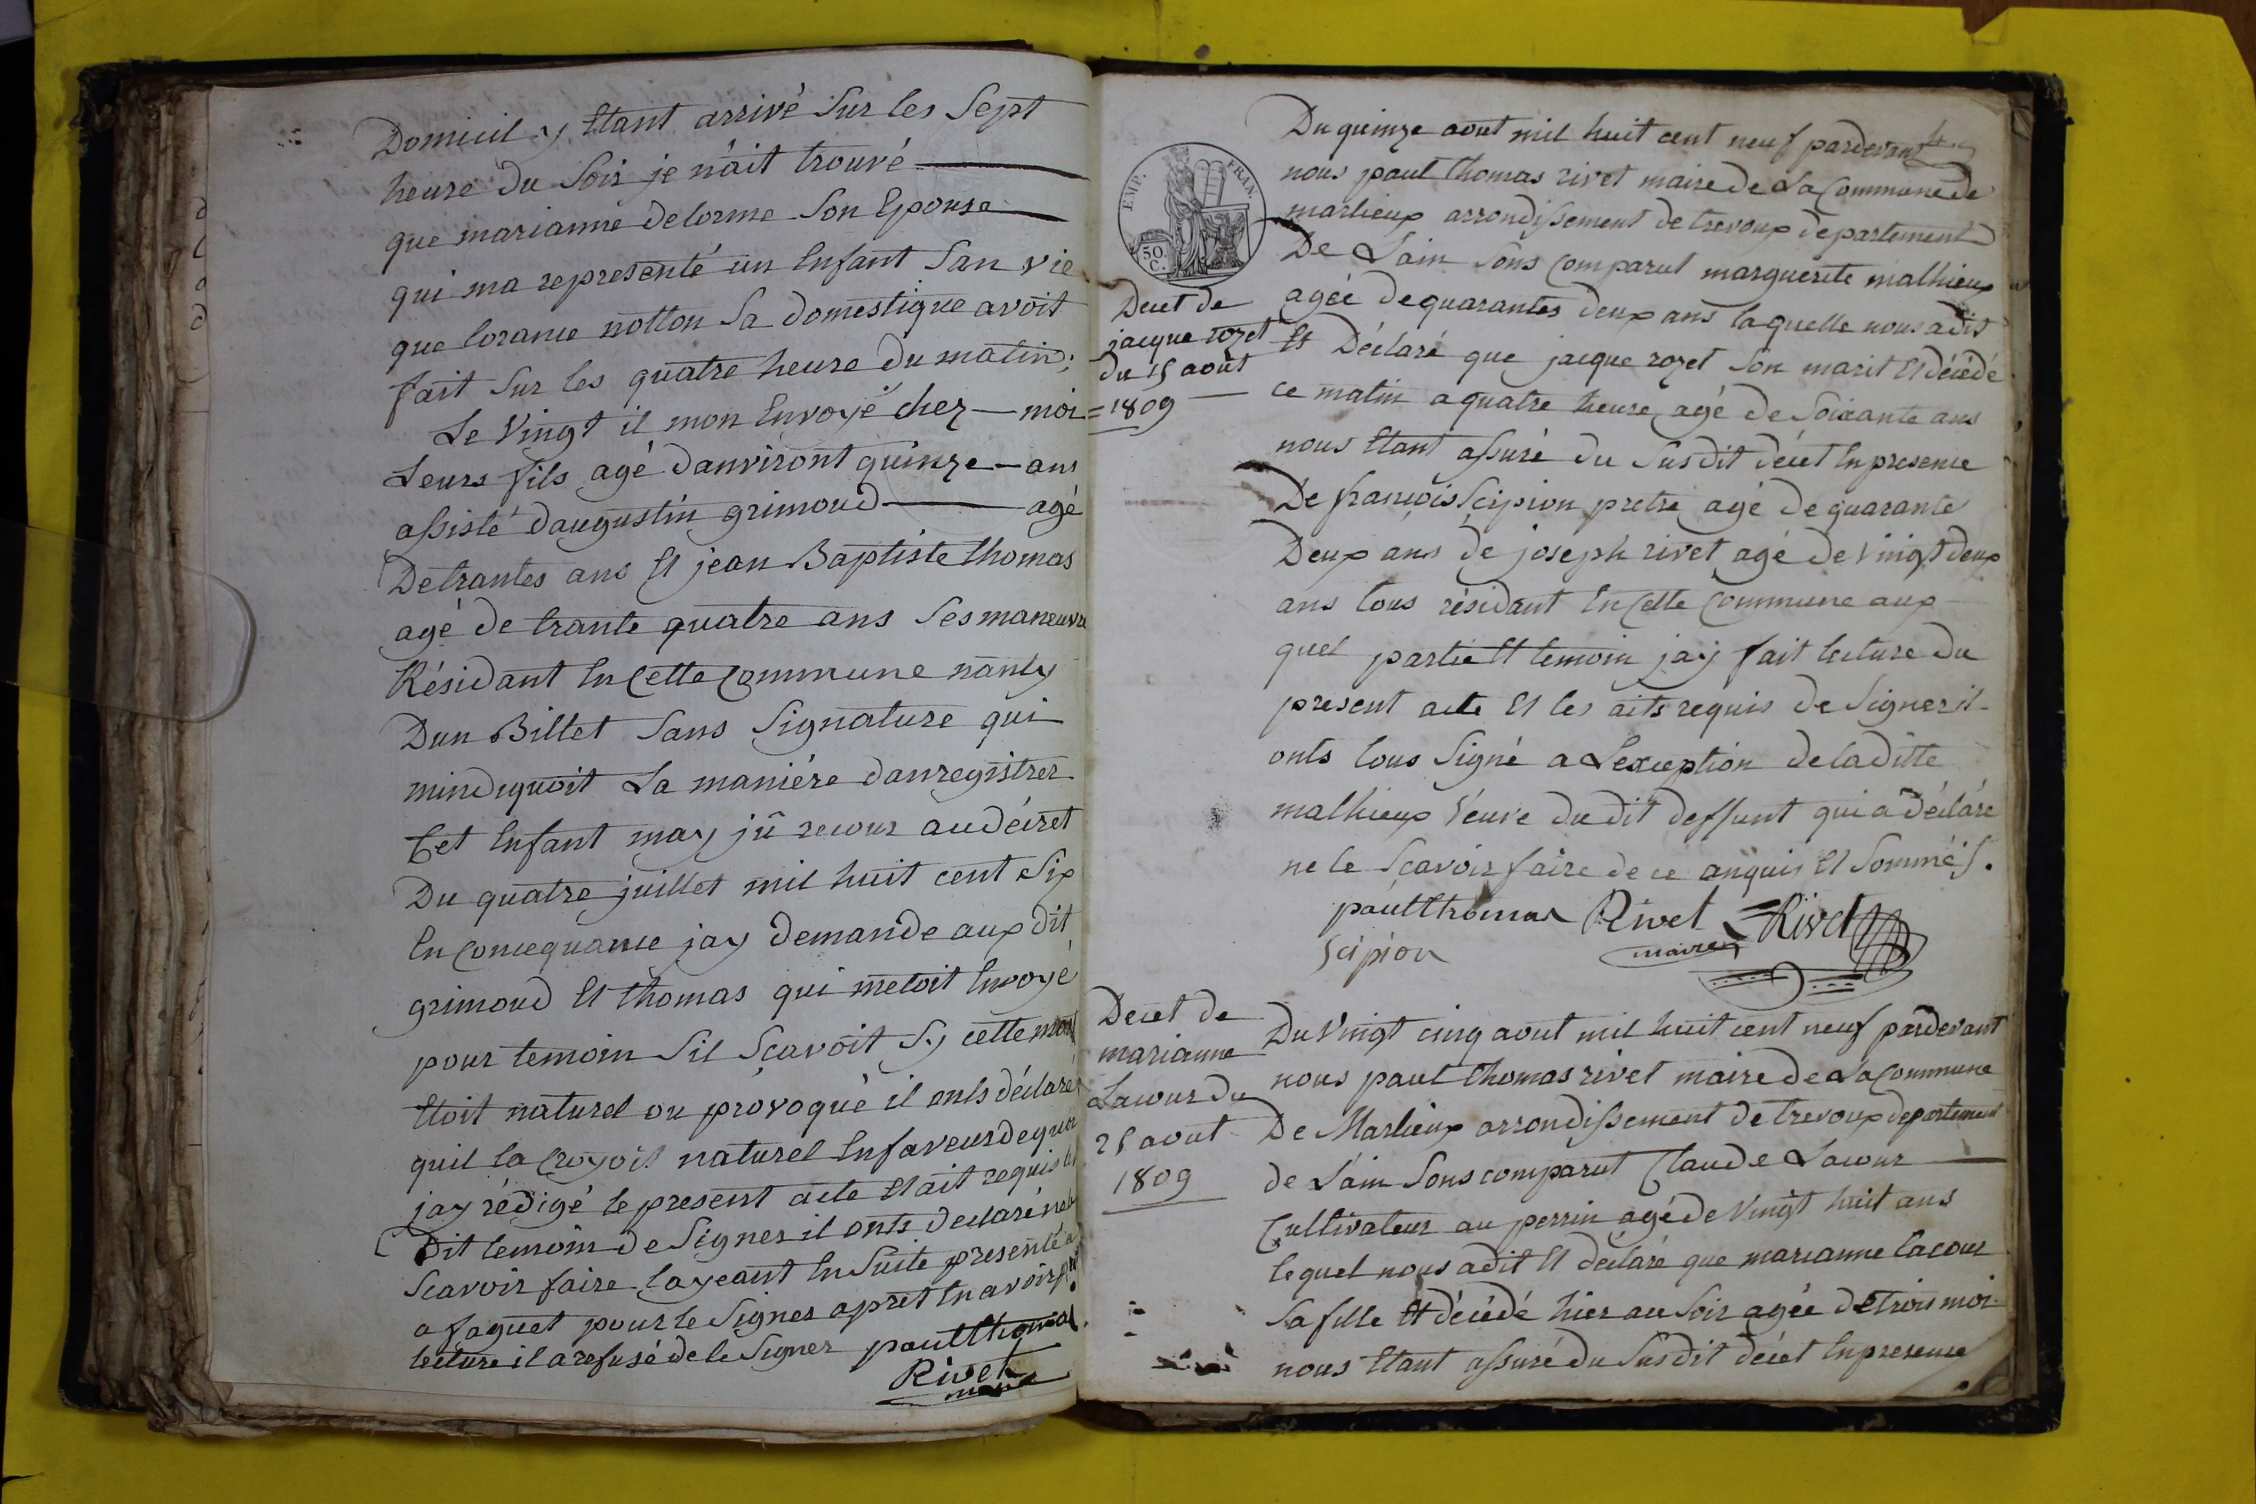 Domicil y Etant arrivé Sur les Sept
heure du Soir je n'ait trouvé
que marianne delorme Son Epouse
qui ma representé un Enfant San vie
que lorance notton Sa domestique avoit
fait Sur les quatre heure du matin;
Le Vingt il mon Envoyé chez moi
Leurs fils agé danviront quinze ans
assisté daugustin grimoud agé
Detrantes ans Et jean Baptiste thomas
agé de trante quatre ans Ses maneuvre
Résidant En Cette Commune nanty
Dun Billet Sans Signature qui
mindiquoit La maniére danregistrer
Cet Enfant may jû recour au déciret
Du quatre juillet mil huit cent Six
En Concequance jay demande aux dit
grimoud Et thomas qui metoit Envoyé
pour temoin Sil Scavoit Sy cette mort
Etoit naturel ou provoqué il onts déclaré
quil la Croyoit naturel En faveur de quoi
jay rédigé le present acte Et ait requis les
Dit temoin de Signer il onts declaré ne le
Scavoir faire layeant En Suite presenté a
a faguet pour le Signer apret En avoir pri
lecture il a refusé de le Signer paul thomas
Rivet
maire
EMP. FRAN.
50 C.
Decet de
jacque rozet
du 15 août
=1809
Du quinze aout mil huit cent neuf pardevant
nous paul thomas rivet maire de La Commune de
marlieux arrondissement de trevoux departement
De Lain Sons Comparut marguerite mathieux
agéé de quarantes deux ans laquelle nous a dit
Et Déclaré que jacque rozet Son marit Et décédé
ce matin a quatre heure agé de Soixante ans
nous Etant assuré du Susdit décet En presence
De françois Scipion pretre agé de quarante
Deux ans de joseph rivet agé de Vingt deux
ans tous résidant En Cette Commune aux
quel partie Et temoin jay fait lecture du
present acte Et les aits requis de Signer il
onts tous Signé a Lexception de laditte
mathieux Veuve du dit deffunt qui a déclaré
ne le Scavoir faire de ce anquis Et Sommé f.
paul thomas Rivet Rivet
maire
Scipion
Decet de
marianne
Lacour du
25 aout
1809
Du Vingt cinq aout mil huit cent neuf pardevant
nous paul thomas rivet maire de La Commune
De Marlieux arrondissement de trevoux departement
de Lain Sons comparut Claude Lacour
Cultivateur au perrin agé de Vingt huit ans
lequel nous a dit Et déclaré que marianne lacour
Sa fille Et décédé hier au Soir agée de trois moi
nous Etant assuré du Susdit décet En presence